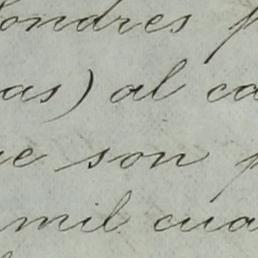 ondres p
as) al ca
ue son p
mil cua